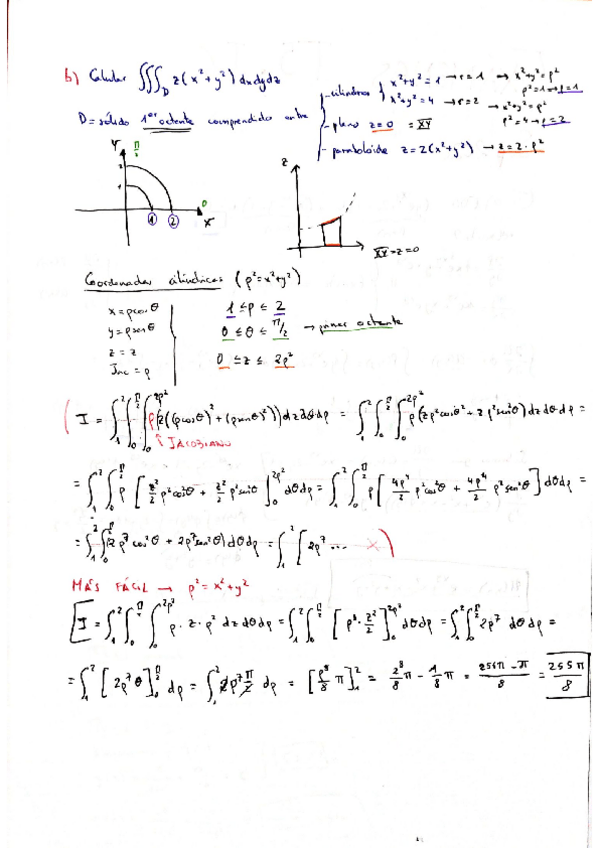 b) Calcular ∭_D z(x²+y²) dxdydz
D = sólido 1er octante comprendido entre
- cilindros { x²+y²=1 → r=1 → x²+y²=ρ² ρ²=1 → ρ=1
x²+y²=4 → r=2 → x²+y²=ρ² ρ²=4 → ρ=2
- plano z=0 = XY
- paraboloide z=2(x²+y²) → z=2·ρ²
Y π/2
2
1
0
1 2 X
z
XY → z=0
Coordenadas cilíndricas (ρ²=x²+y²)
x = ρcosθ 1 ≤ ρ ≤ 2
y = ρsenθ 0 ≤ θ ≤ π/2 → primer octante
z = z 0 ≤ z ≤ 2ρ²
Jac = ρ
( I = ∫₁² ∫₀^{π/2} ∫₀^{2ρ²} ρ(z((ρcosθ)²+(ρsenθ)²)) dz dθ dρ = ∫₁² ∫₀^{π/2} ∫₀^{2ρ²} ρ(zρ²cosθ² + zρ²sen²θ) dz dθ dρ =
↳ JACOBIANO
= ∫₁² ∫₀^{π/2} ρ [ z²/2 ρ²cos²θ + z²/2 ρ²senθ ]₀^{2ρ²} dθdρ = ∫₁² ∫₀^{π/2} ρ [ 4ρ⁴/2 ρ²cos²θ + 4ρ⁴/2 ρ²sen²θ ] dθdρ =
= ∫₁² ∫₀^{π/2} (2ρ⁷cos²θ + 2ρ⁷sen²θ) dθdρ = ∫₁² [ 2ρ⁷ ... X )
MÁS FÁCIL → ρ² = x²+y²
I = ∫₁² ∫₀^{π/2} ∫₀^{2ρ²} ρ·z·ρ² dz dθ dρ = ∫₁² ∫₀^{π/2} [ ρ³·z²/2 ]₀^{2ρ²} dθdρ = ∫₁² ∫₀^{π/2} 2ρ⁷ dθ dρ =
= ∫₁² [ 2ρ⁷θ ]₀^{π/2} dρ = ∫₁² 2ρ⁷ π/2 dρ = [ ρ⁸/8 π ]₁² = 2⁸/8 π - 1/8 π = 256π - π/8 = 255π/8